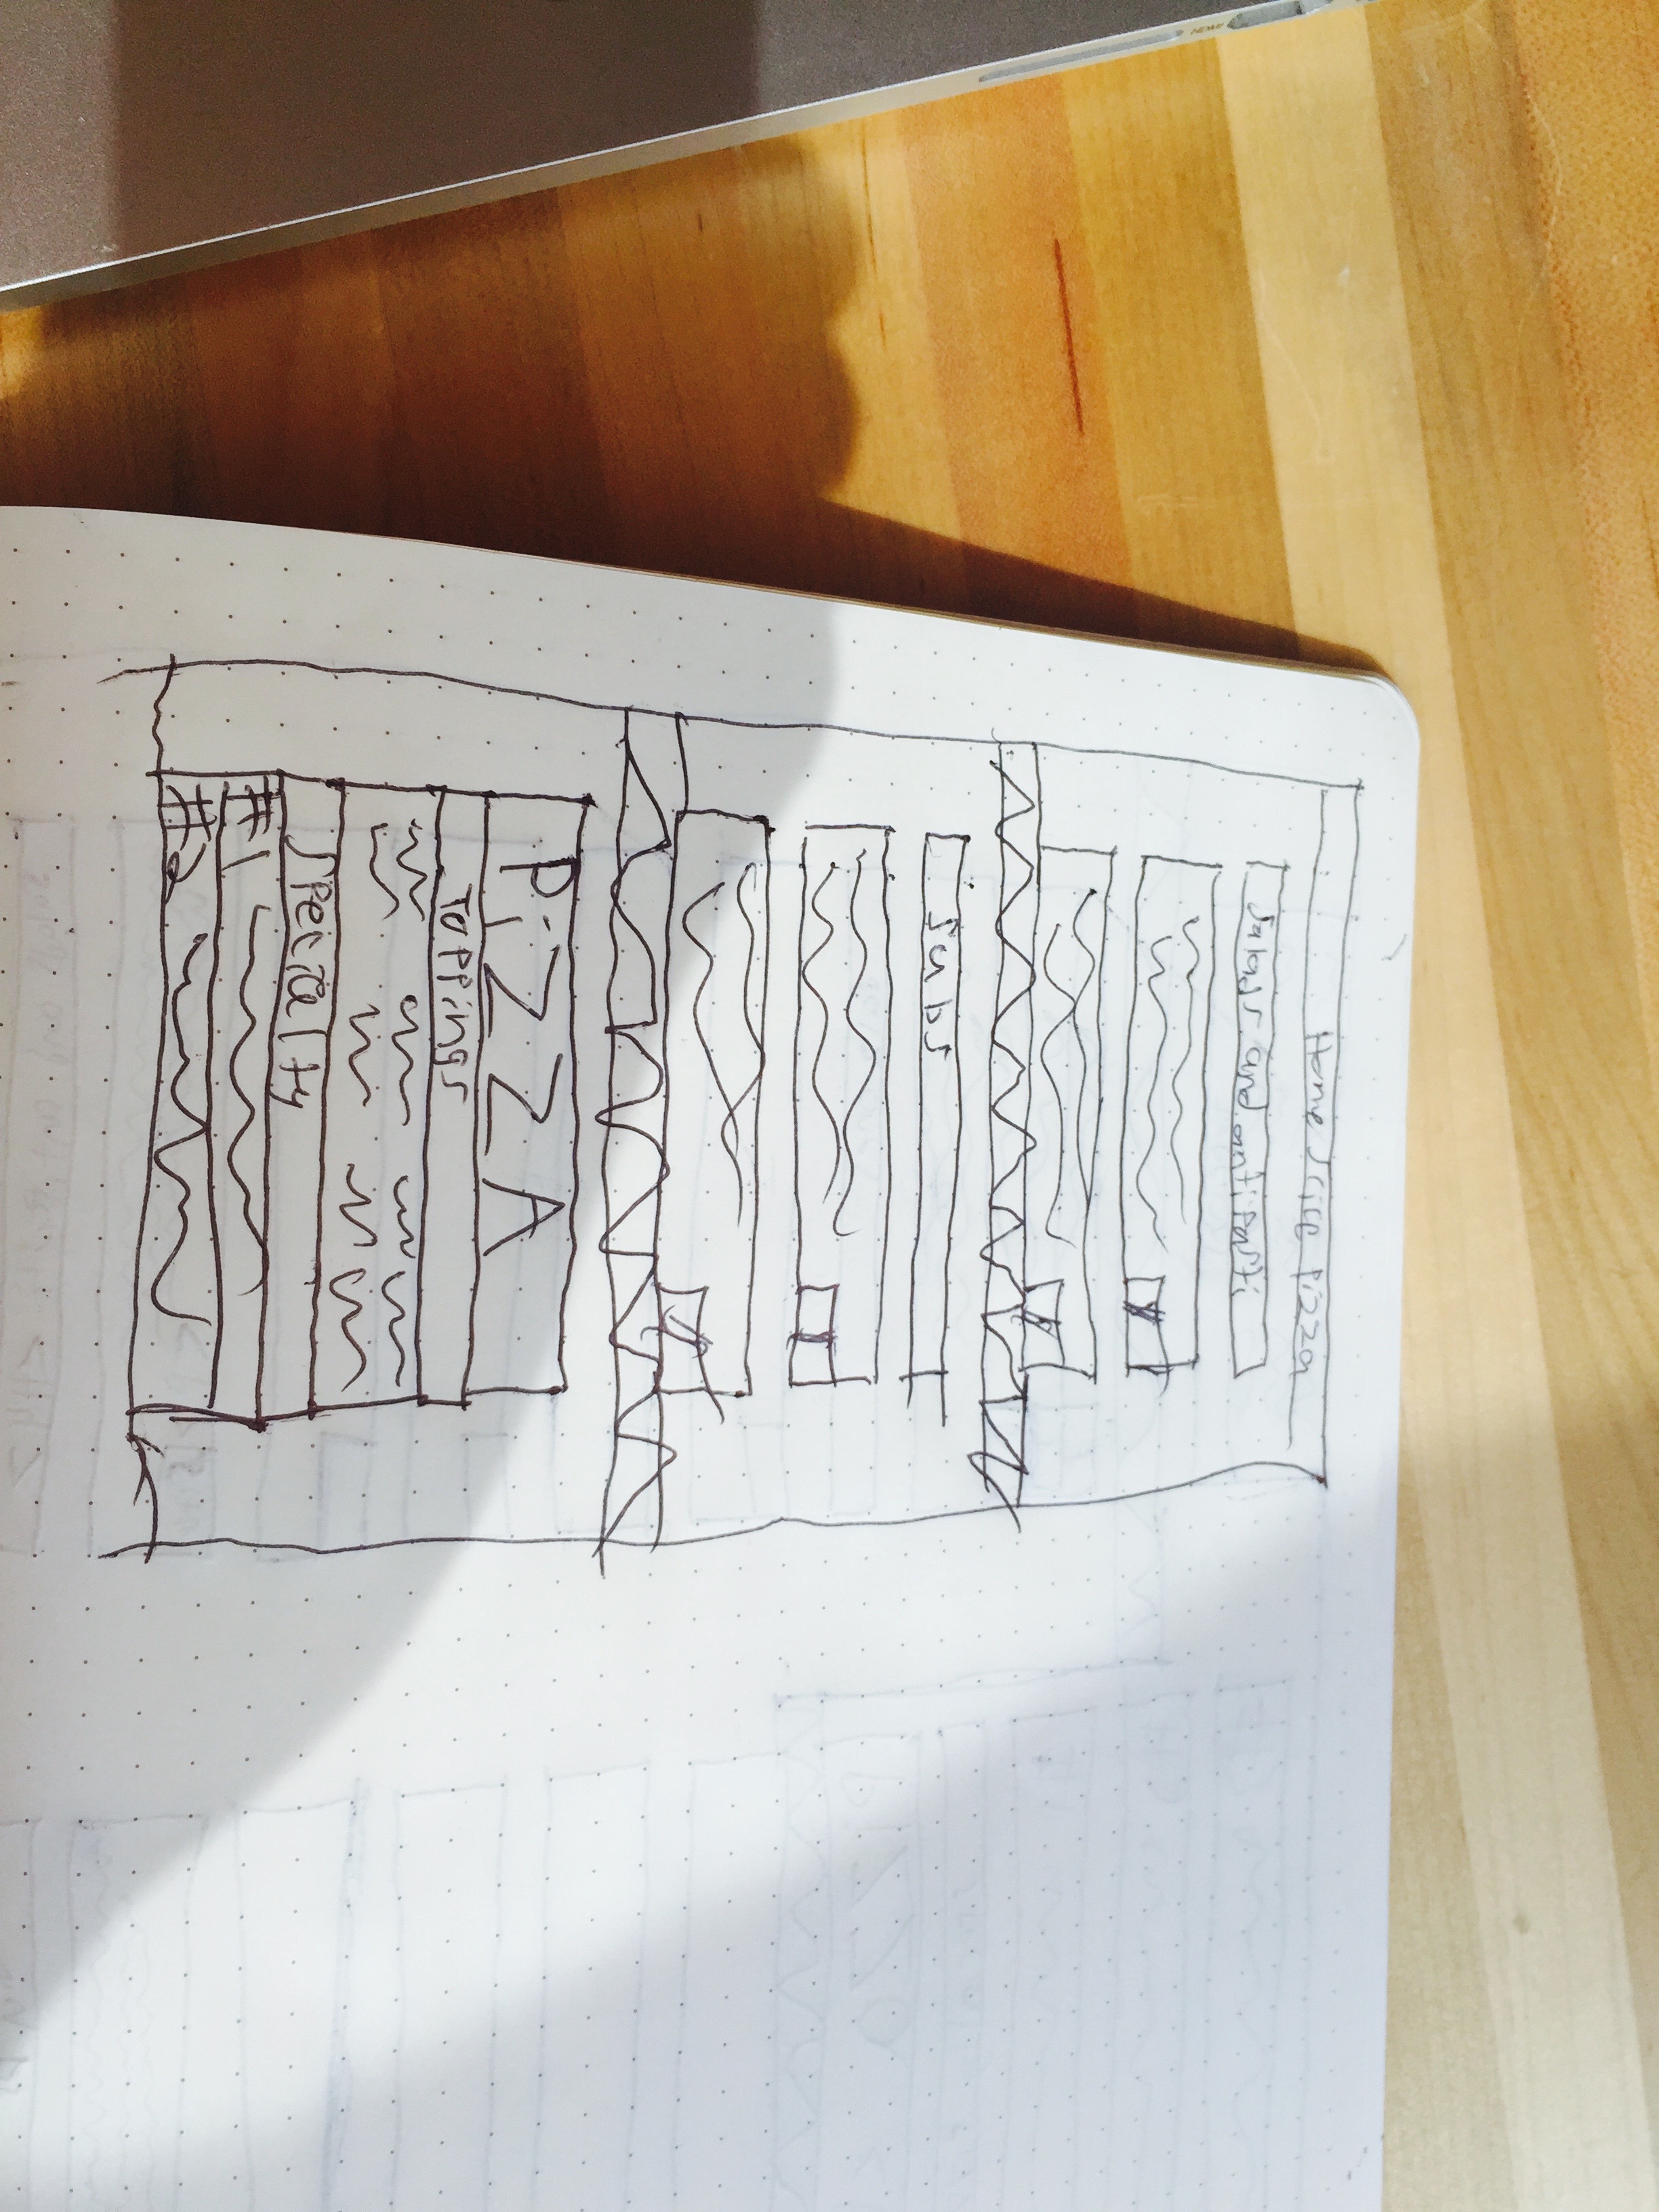 HDMI
Home Slice Pizza
Salads and antipasti
Subs
PiZZA
Toppings
Specialty
#1
#2